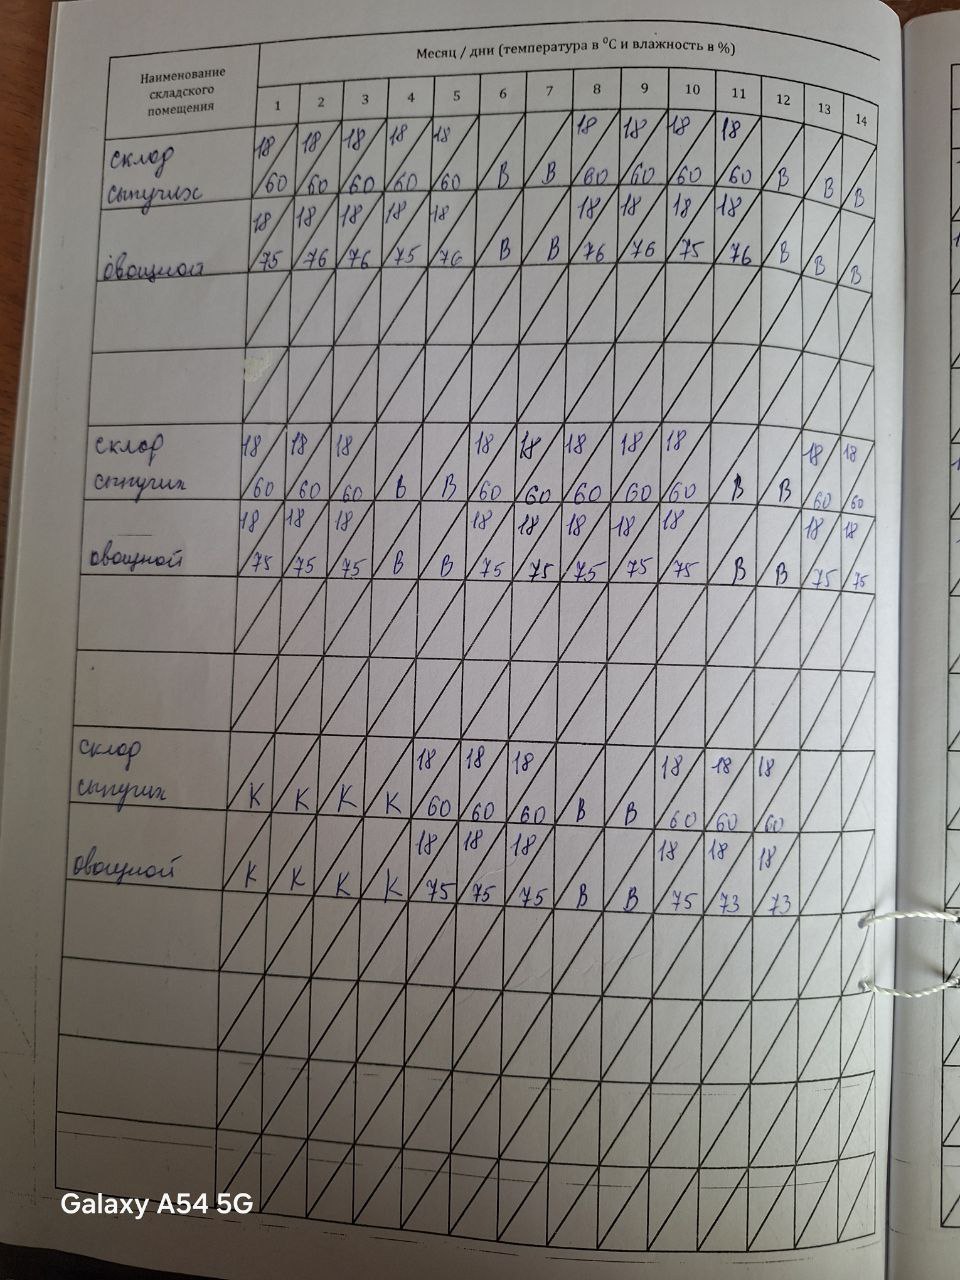 Месяц / дни (температура в °С и влажность в %)
Наименование
складского
помещения
1 2 3 4 5 6 7 8 9 10 11 12 13 14
склад 18 18 18 18 18 18 18 18 18
сыпучих 60 60 60 60 60 В В 60 60 60 60 В В В
18 18 18 18 18 18 18 18 18
овощной 75 76 76 75 76 В В 76 76 75 76 В В В
склад 18 18 18 18 18 18 18 18 18 18
сыпучих 60 60 60 В В 60 60 60 60 60 В В 60 60
18 18 18 18 18 18 18 18 18 18
овощной 75 75 75 В В 75 75 75 75 75 В В 75 75
склад 18 18 18 18 18 18
сыпучих К К К К 60 60 60 В В 60 60 60
18 18 18 18 18 18
овощной К К К К 75 75 75 В В 75 73 73
Galaxy A54 5G